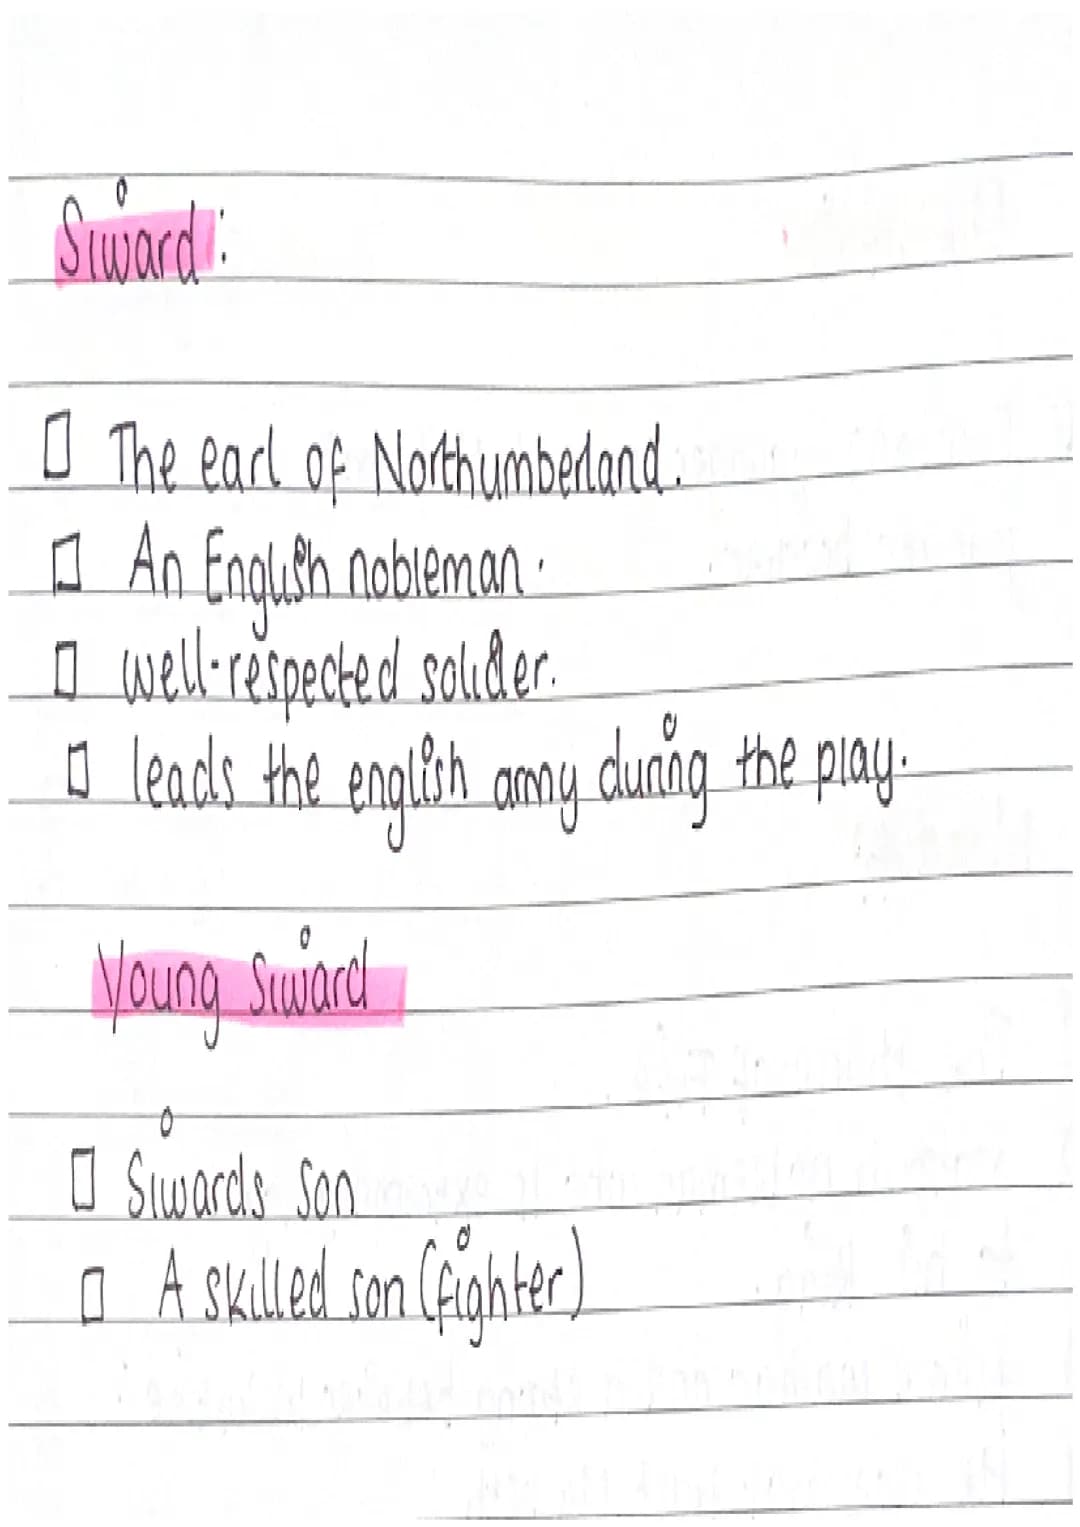 Siward:
The earl of Northumberland.
An English nobleman.
well-respected solider.
leads the english army during the play.
Young Siward
Siwards son
A skilled son (fighter)